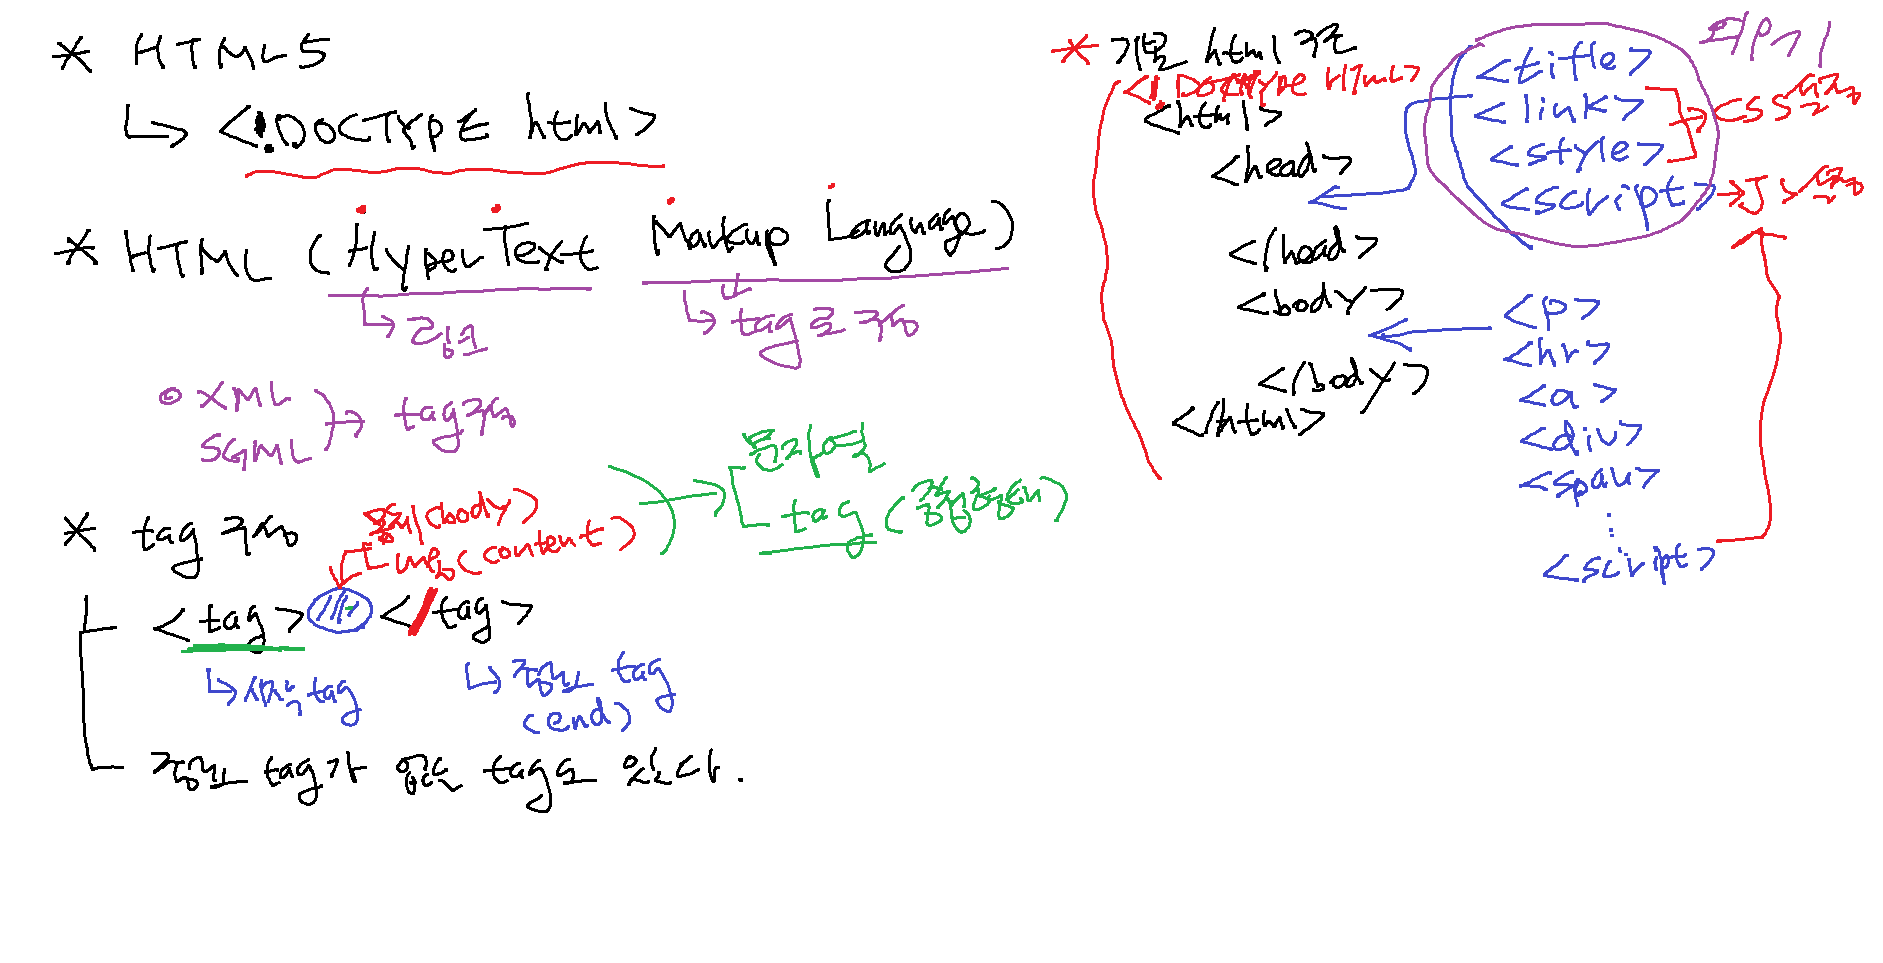 * HTML5
↳ <!DOCTYPE html>
* HTML (HyperText Markup Language)
↳ 링크
↳ tag로 구성
⊙ XML
SGML
→ tag 구성
* tag 구성
몸체(body)
내용(content)
문자열
tag (중첩형태)
<tag> </tag>
↳ 시작 tag
↳ 종료 tag
(end)
종료 tag가 없는 tag도 있다.
* 기본 html 구조
<!DOCTYPE HTML>
<html>
<head>
</head>
<body>
</body>
</html>
<title>
<link>
<style>
→ CSS
<script> → JS
외우기
<p>
<hr>
<a>
<div>
<span>
⋮
<script>